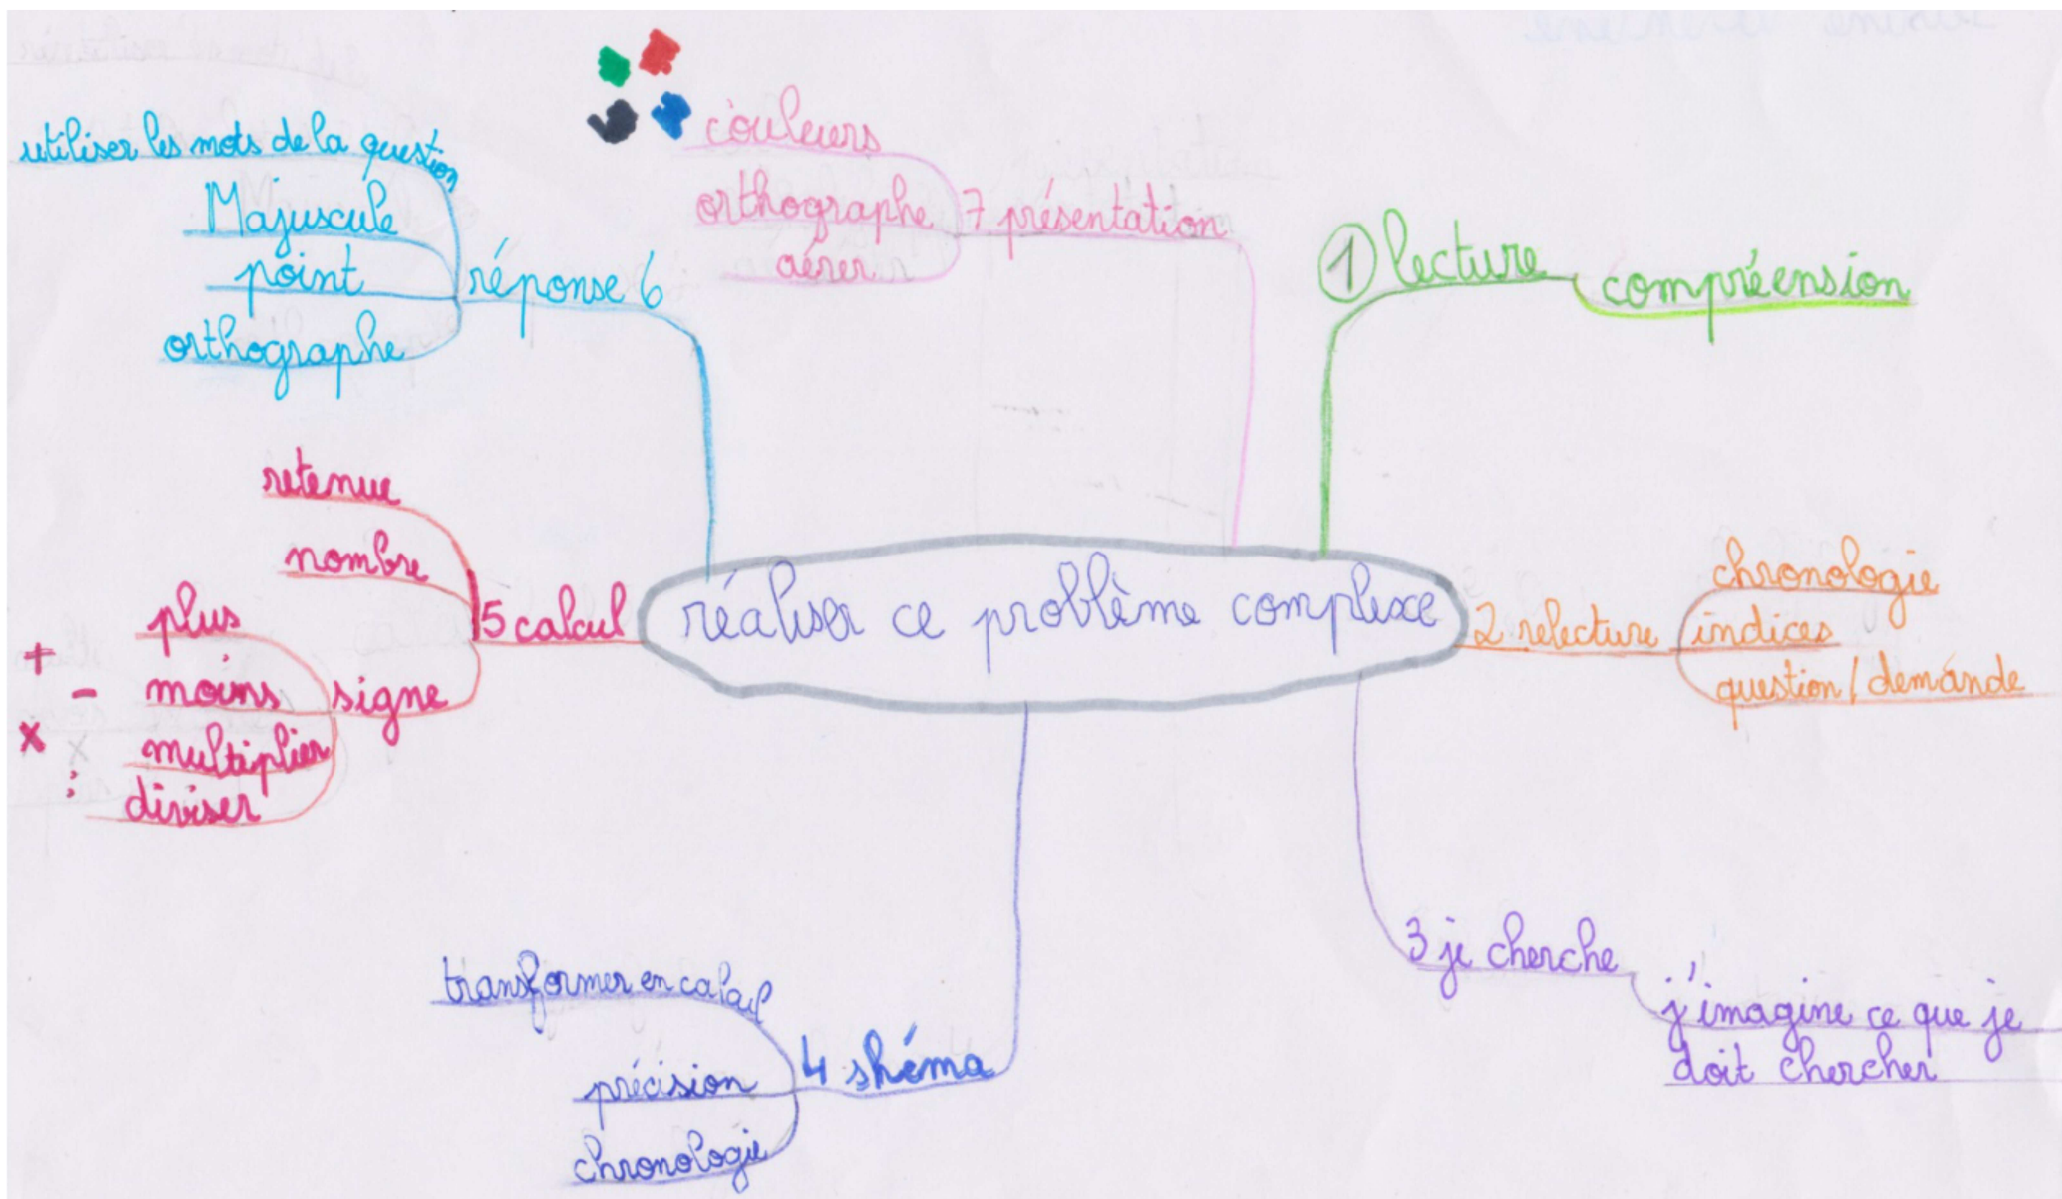 réaliser ce problème complexe
1 lecture
compréension
2 relecture
chronologie
indices
question/demande
3 je cherche
j'imagine ce que je
doit chercher
4 shéma
transformer en calcul
précision
chronologie
5 calcul
retenue
nombre
signe
plus
+
moins
-
multiplier
x
diviser
:
réponse 6
utiliser les mots de la question
Majuscule
point
orthographe
7 présentation
couleurs
orthographe
aérer